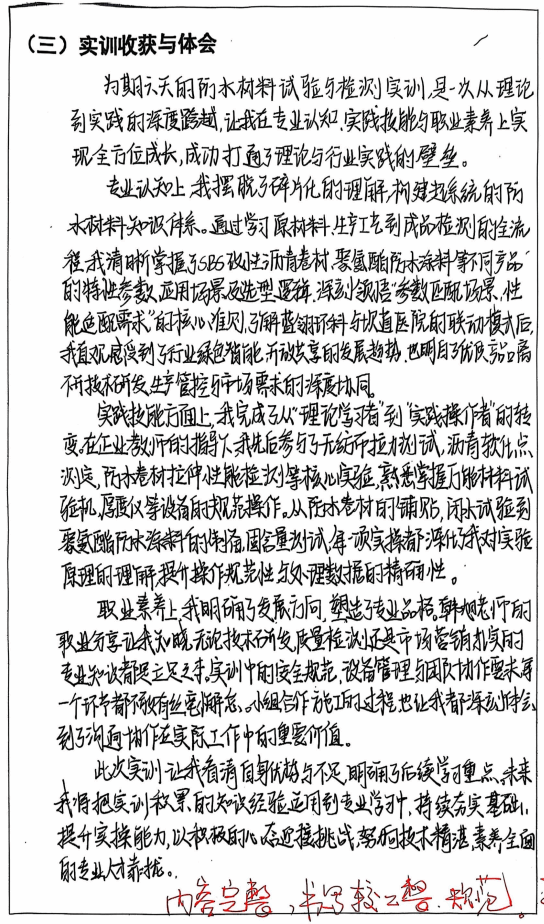 （三）实训收获与体会
为期六天的防水材料试验与检测实训，是一次从理论
到实践的深度跨越，让我在专业认知、实践技能与职业素养上实
现全方位成长，成功打通了理论与行业实践的壁垒。
专业认知上，我摆脱了碎片化的理解，构建起系统的防
水材料知识体系。通过学习原材料、生产工艺到成品检测的全流
程，我清晰掌握了SBS改性沥青卷材、聚氨酯防水涂料等不同产品
的特性参数、应用场景及选型逻辑，深刻领悟“参数匹配场景，性
能适配需求”的核心准则，了解蓝翎环科与坝道医院的联动模式后，
我直观感受到了行业绿色智能、开放共享的发展趋势，也明白了优质产品离
不开技术研发、生产管控与市场需求的深度协同。
实践技能方面上，我完成了从“理论学习者”到“实践操作者”的转
变。在企业教师的指导下，我先后参与了无纺布拉力测试，沥青软化点
测定，防水卷材拉伸性能检测等核心实验，熟悉掌握万能材料试
验机、厚度仪等设备的规范操作。从防水卷材的铺贴，闭水试验到
聚氨酯防水涂料的制备，固含量测试，每一项实操都深化了我对实验
原理的理解，提升操作规范性与处理数据的精确性。
职业素养上，我明确了发展方向，塑造了专业品格，韩旭老师的
职业分享让我知晓，无论技术研发，质量检测还是市场营销，扎实的
专业知识都是立足之本。实训中的安全规范，设备管理与团队协作要求每
一个环节都不敢有丝毫懈怠。小组合作施工的过程也让我都深刻体会
到了沟通协作在实际工作中的重要价值。
此次实训让我看清自身优势与不足，明确了后续学习重点，未来
我将把实训积累的知识经验运用到专业学习中，持续夯实基础，
提升实操能力，以积极的心态迎接挑战，努力向技术精湛，素养全面
的专业人才靠拢。
内容完整，书写较工整、规范。